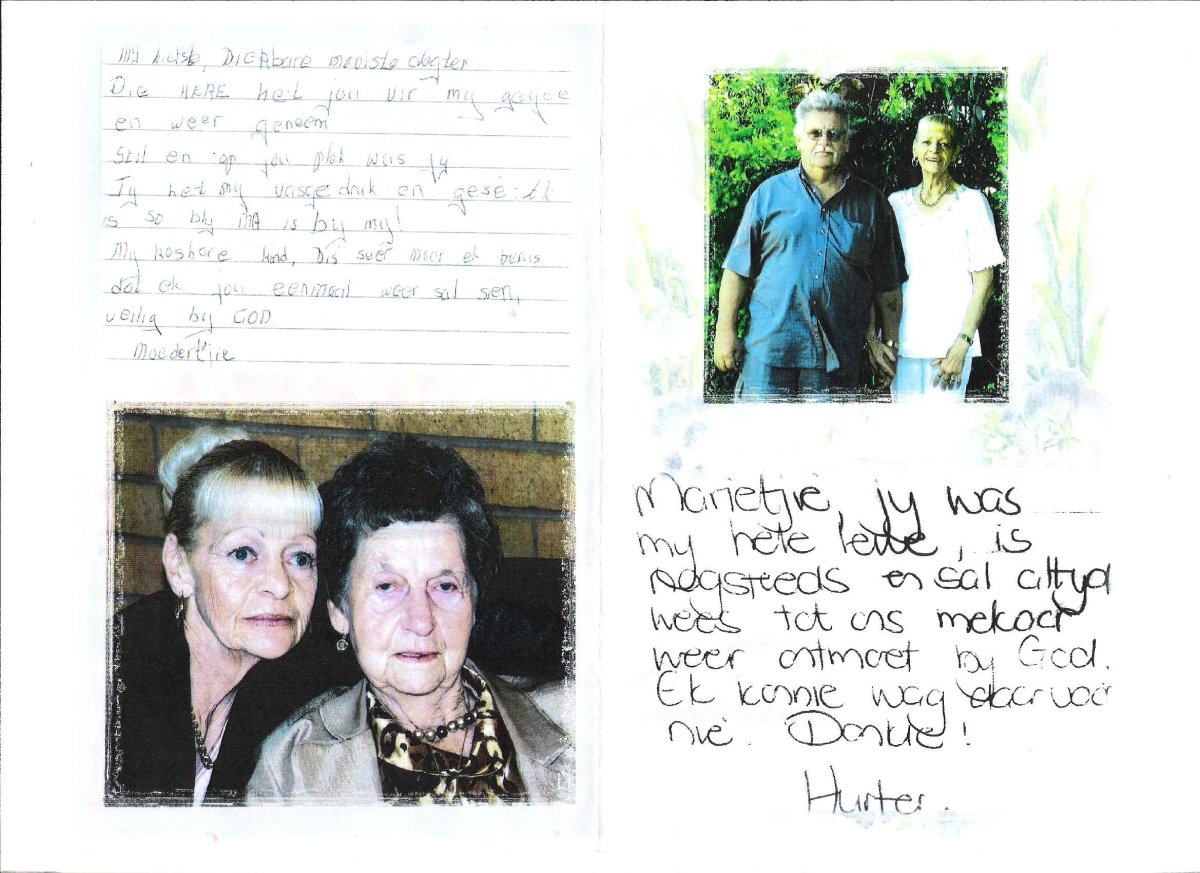 My liefste, DIERbare mooiste dogter
Die HERE het jou vir my gegee
en weer geneem
Stil en op jou plek was jy
Jy het my vasgedruk en gesê: Ek
is so bly MA is by my!
My kosbare kind, Dis seer maar ek berus
dat ek jou eenmaal weer sal sien,
veilig by GOD
Moedertjie
Marietjie, jy was
my hele lewe, is
nogsteeds en sal altyd
wees tot ons mekaar
weer ontmoet by God.
Ek kannie wag daarvoor
nie. Dankie!
Hurter.